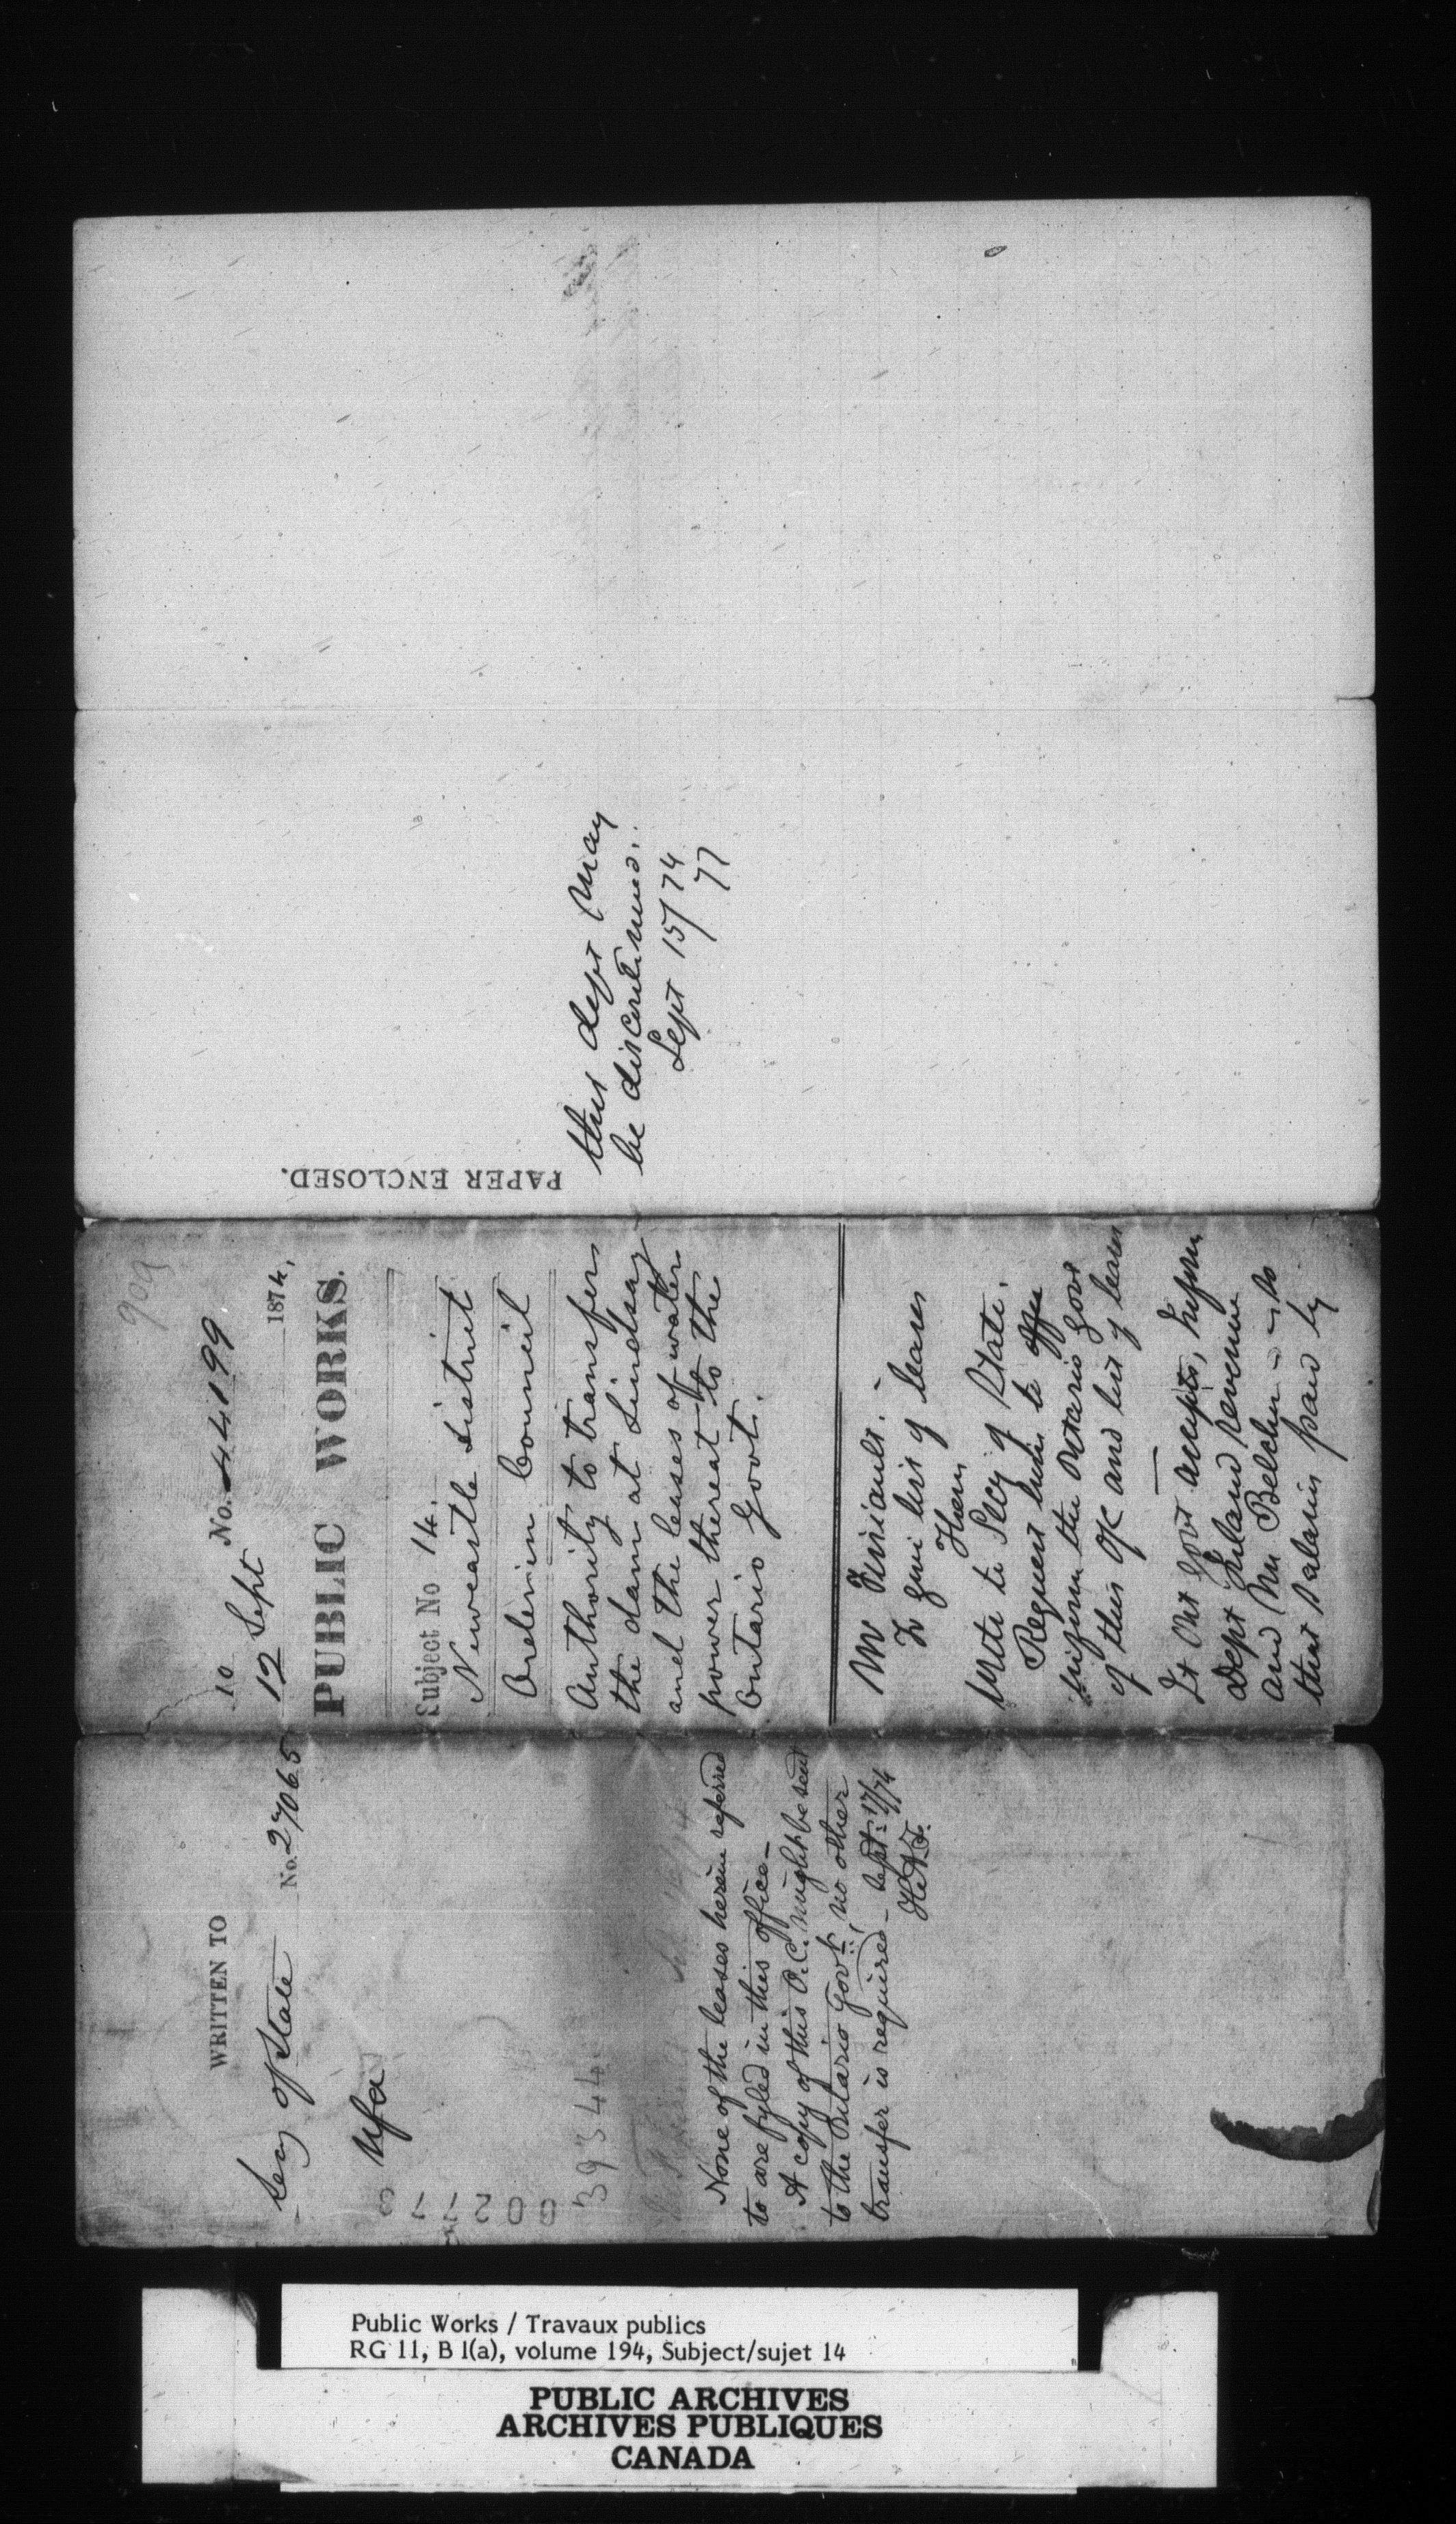 WRITTEN TO
Secy of State No. 27065
39344
None of the leases herein referred
to are fyled in this office_
A copy of this O.C. might be sent
to the Ontario Govt; no other
transfer is required_ Sept: 17/74
909
10 No. 44199
12 Sept 1874.
PUBLIC WORKS.
Subject No 14.
Newcastle District
Order in Council
Authority to transfer
the dam at Lindsay
and the leases of water
power thereat to the
Ontario Govt.
Mr
To give list of leases
Them
Write to Secy of State.
Request him to
inform the Ontario Govt
of this OC and list of leases
If Ont Govt accepts, Inform
Dept Inland Revenue
and Mr Belcher
that salaries paid by
PAPER ENCLOSED.
this dept may
be discontinued.
Sept 15/74
Public Works / Travaux publics
RG 11, B 1(a), volume 194, Subject/sujet 14
PUBLIC ARCHIVES
ARCHIVES PUBLIQUES
CANADA